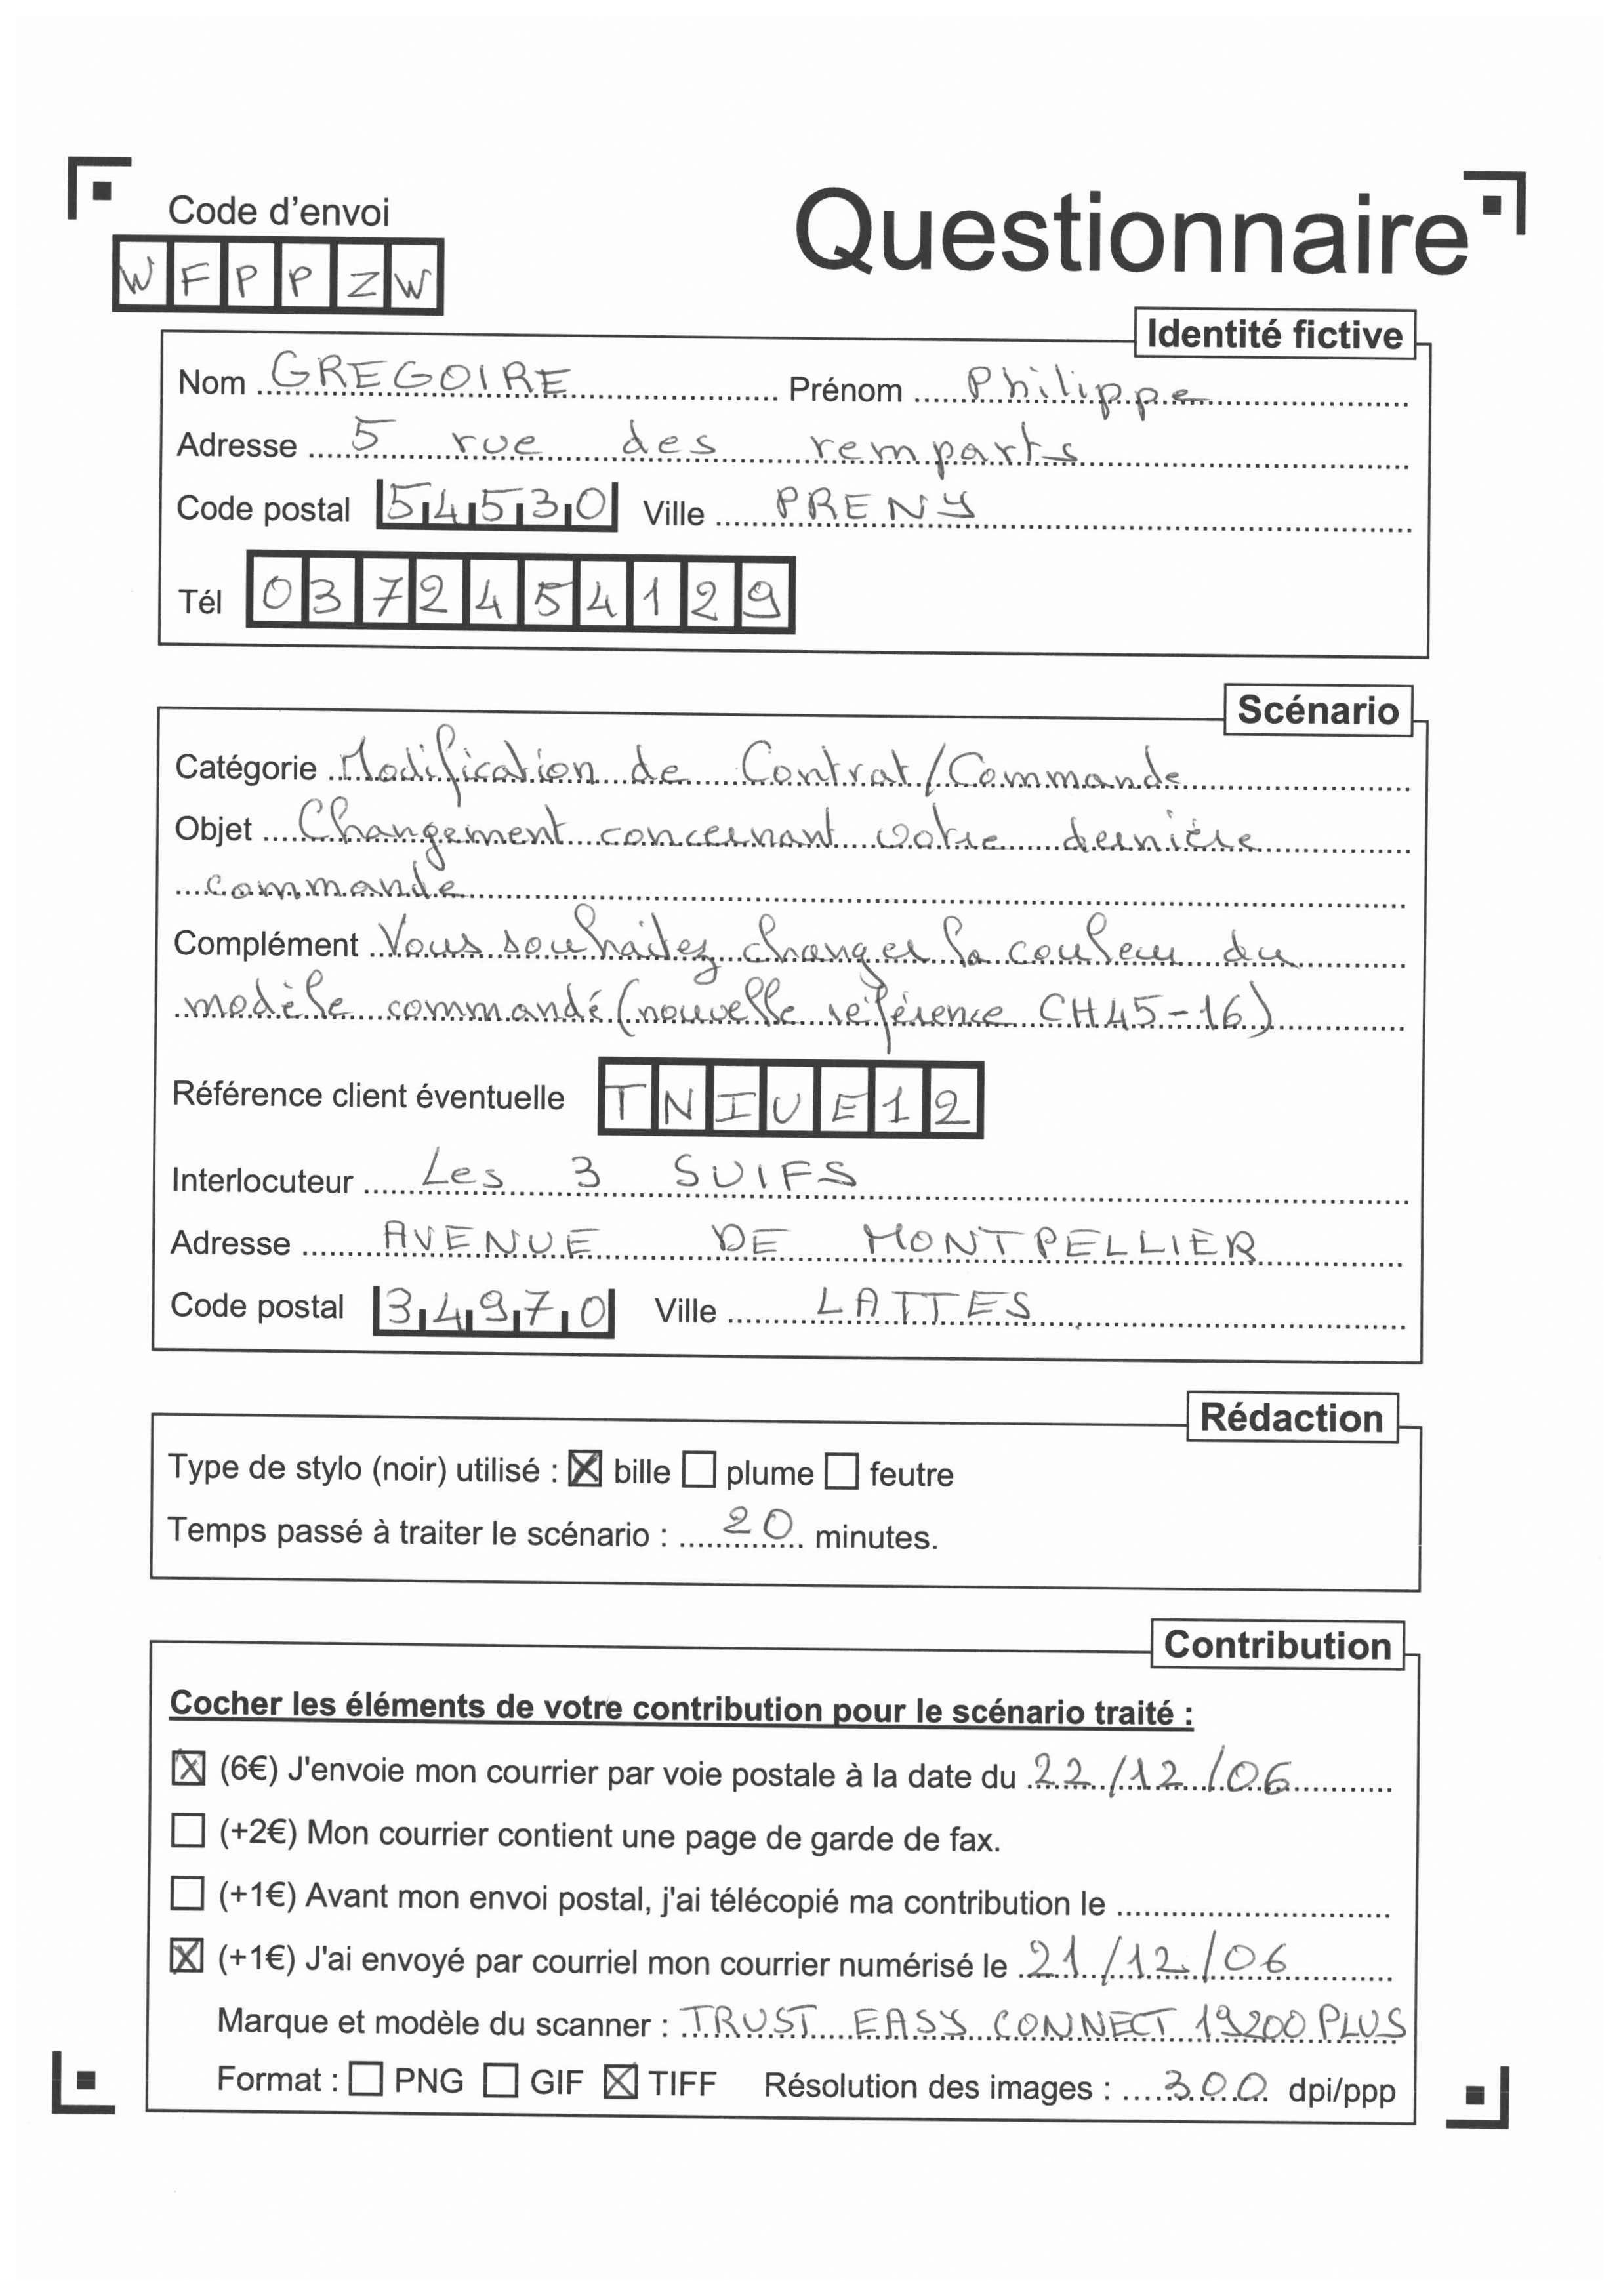 Code d'envoi
Questionnaire
WFPPZW
Identité fictive
Nom GREGOIRE Prénom Philippe
Adresse 5 rue des remparts
Code postal 54530 Ville PRENY
Tél 0372454129
Scénario
Catégorie Modification de Contrat/Commande
Objet Changement concernant votre dernière
commande
Complément Vous souhaitez changer la couleur du
modèle commandé (nouvelle référence CH45-16)
Référence client éventuelle TNIUE12
Interlocuteur Les 3 SUIFS
Adresse AVENUE DE MONTPELLIER
Code postal 34970 Ville LATTES
Rédaction
Type de stylo (noir) utilisé : ☒ bille ☐ plume ☐ feutre
Temps passé à traiter le scénario : 20 minutes.
Contribution
Cocher les éléments de votre contribution pour le scénario traité :
☒ (6€) J'envoie mon courrier par voie postale à la date du 22/12/06
☐ (+2€) Mon courrier contient une page de garde de fax.
☐ (+1€) Avant mon envoi postal, j'ai télécopié ma contribution le
☒ (+1€) J'ai envoyé par courriel mon courrier numérisé le 21/12/06
Marque et modèle du scanner : TRUST EASY CONNECT 19200 PLUS
Format : ☐ PNG ☐ GIF ☒ TIFF Résolution des images : 300 dpi/ppp